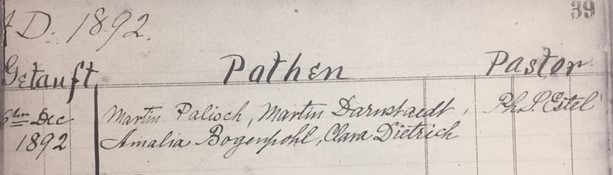 A.D. 1892.
39
Getauft Pathen Pastor
6ten Dec Martin Palioch, Martin Darnstaedt, Ph. P. Estel
1892 Amalia Bogenpohl, Clara Dietrich